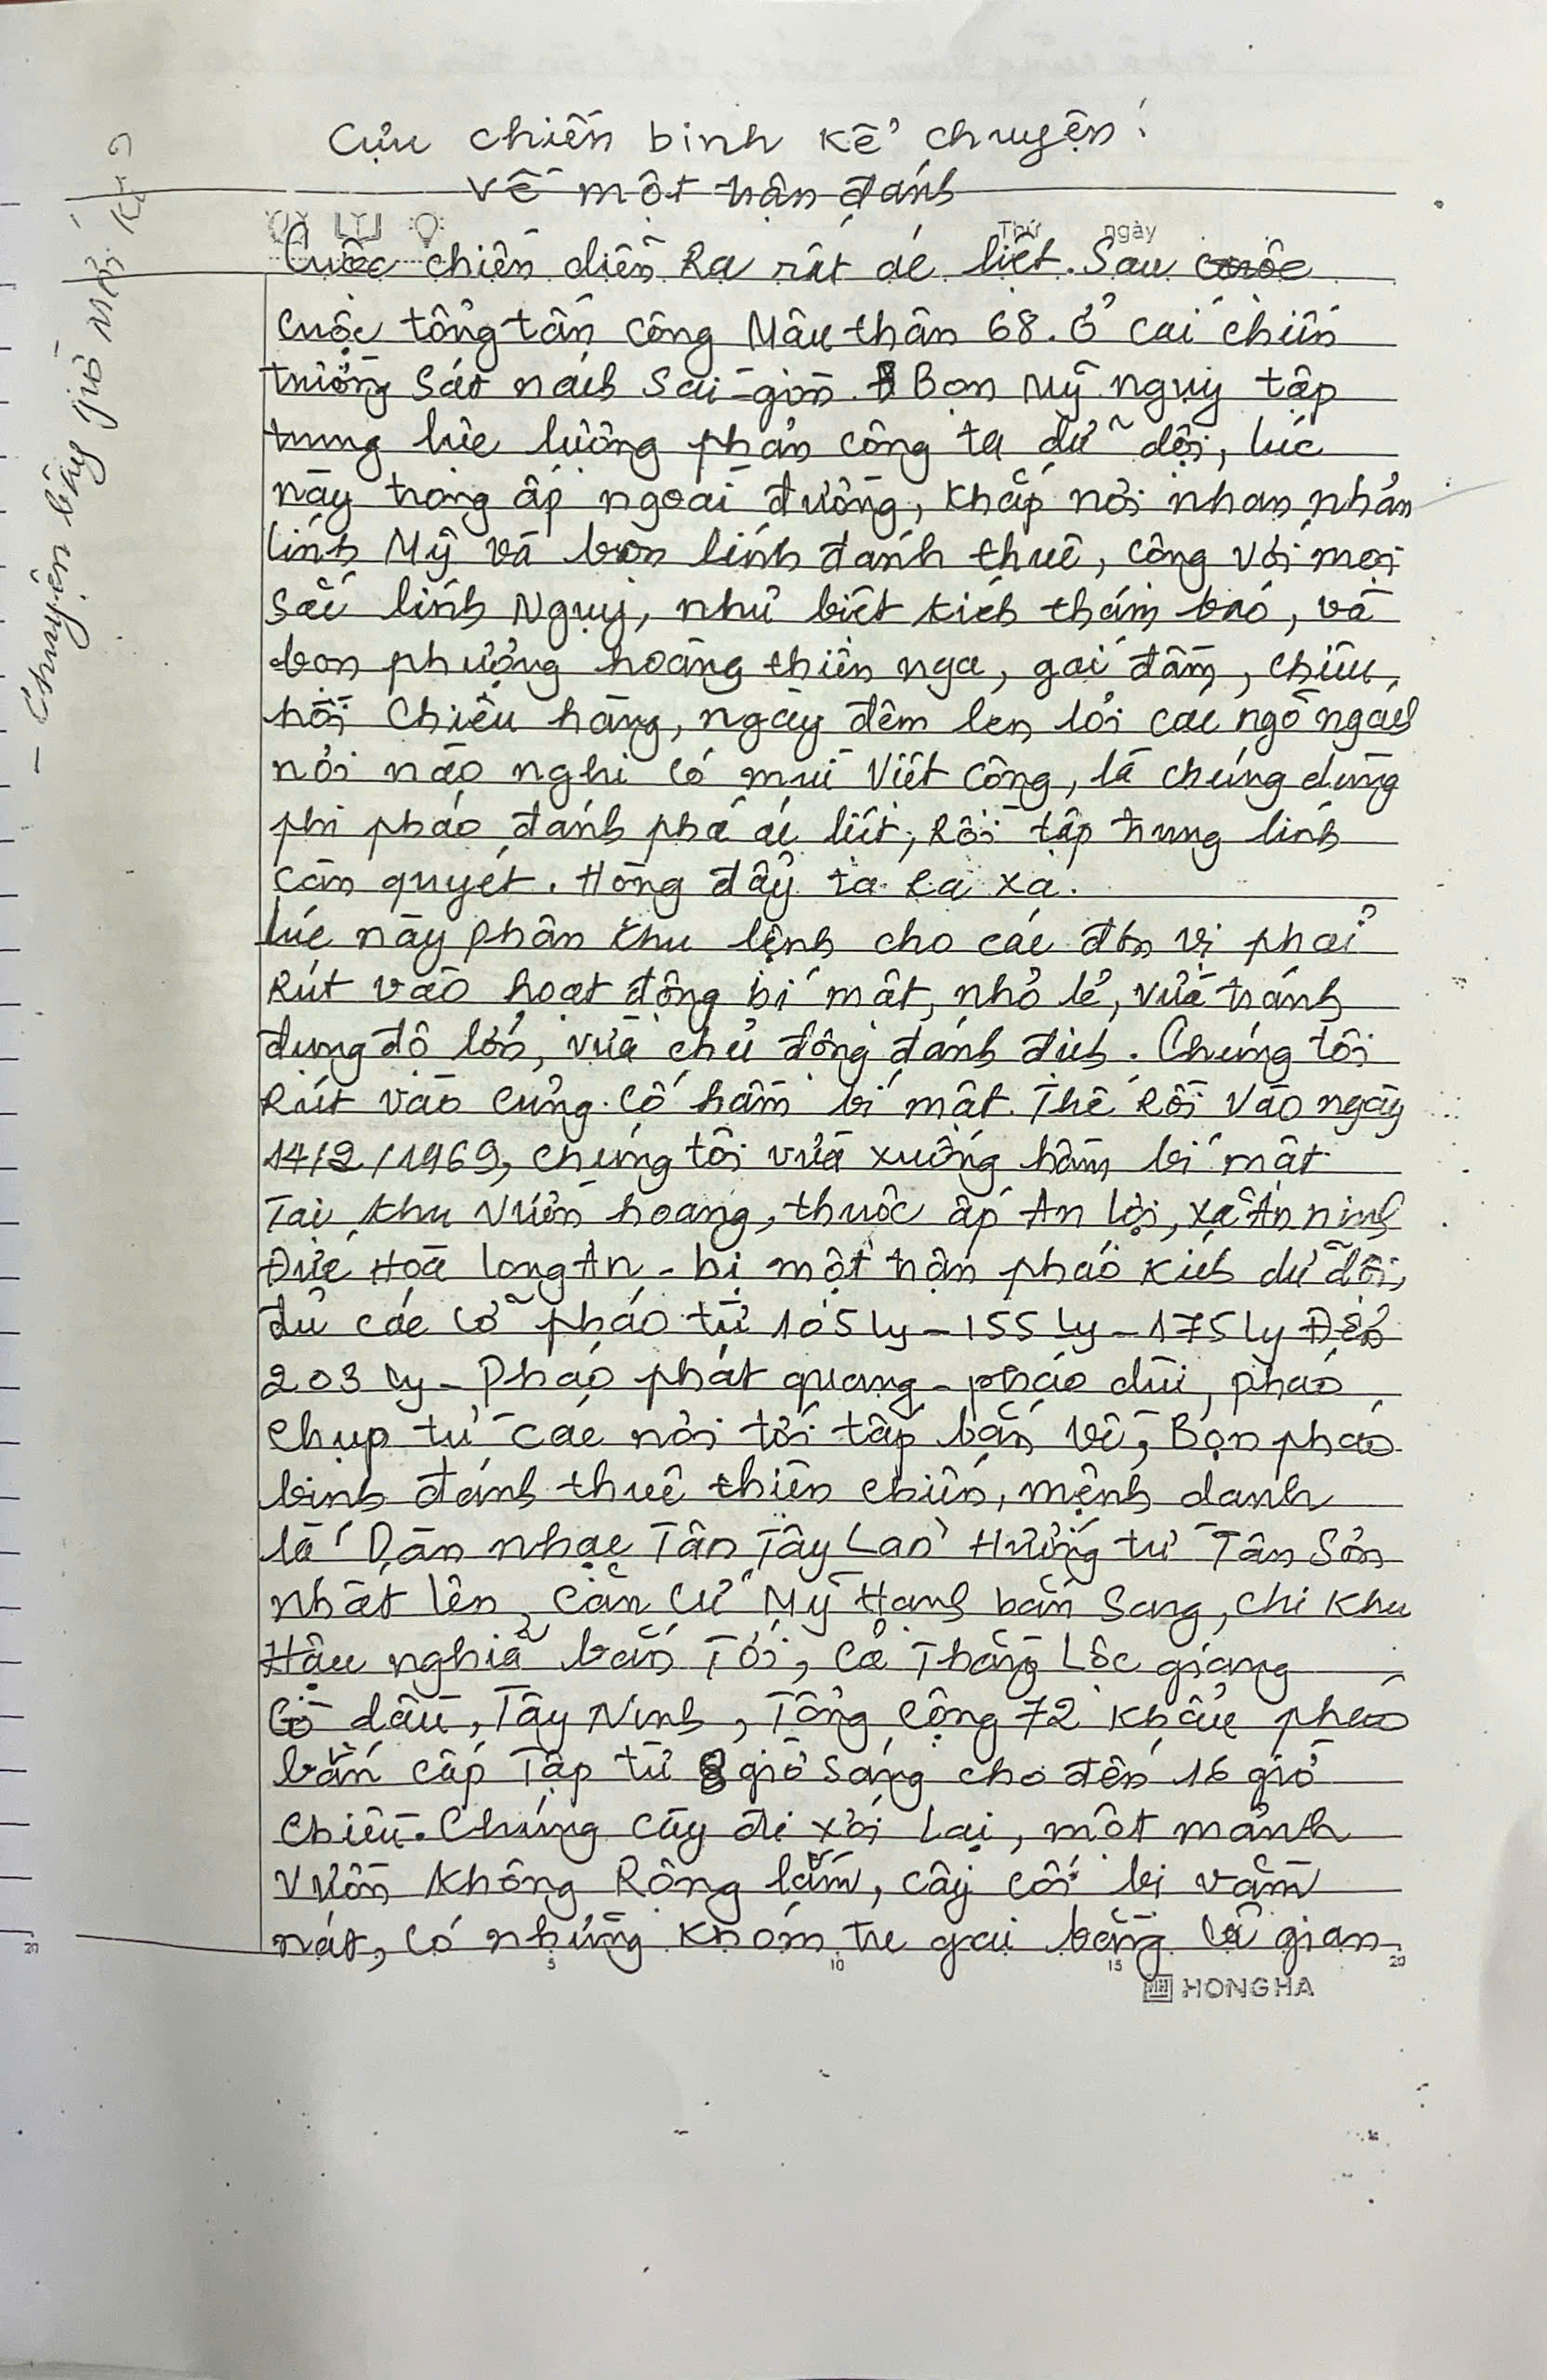 Cựu chiến binh kể chuyện:
Về một trận đánh
Thứ ngày
Cuộc chiến diễn Ra rất ác liệt. Sau cuộc
Cuộc tổng tấn công Mậu thân 68. Ở cái chiến
trường Sát nách Sài-gòn. Bọn Mỹ ngụy tập
trung lực lượng phản công ta dữ dội, lúc
này trong ấp ngoài đường, khắp nơi nhan nhản
lính Mỹ và bọn lính đánh thuê, cộng với mọi
Sắc lính Ngụy, như biệt kích thám báo, và
bọn phượng hoàng thiên nga, gái đâm, chiêu
hồi Chiêu hàng, ngày đêm len lỏi các ngõ ngách
nơi nào nghi có mùi Việt Công, là chúng dùng
phi pháo đánh phá ác liệt, Rồi tập trung lính
càn quyét. Hòng đẩy ta Ra xa.
lúc này phân khu lệnh cho các đơn vị phải
Rút vào hoạt động bí mật, nhỏ lẻ, vừa tránh
đụng độ lớn, vừa chủ động đánh địch. Chúng tôi
Rút vào củng cố hầm bí mật. Thế Rồi Vào ngày
14/2/1969, chúng tôi vừa xuống hầm bí mật
Tại khu Vườn hoang, thuộc ấp An Lợi, xã An ninh
Đức Hoà Long An - bị một trận pháo kích dữ dội,
đủ các cỡ pháo từ 105 ly - 155 ly - 175 ly Đến
203 ly - Pháo phát quang - pháo dùi, pháo
chụp từ các nơi tới tấp bắn về, Bọn pháo
binh đánh thuê thiện chiến, mệnh danh
là "Dàn nhạc Tân Tây Lan" Hướng từ Tân Sơn
Nhất lên, căn cứ Mỹ Hạnh bắn Sang, chi khu
Hậu nghĩa bắn Tới, Cả Thằng Lộc giang
Gò dầu, Tây Ninh, Tổng Cộng 72 khẩu pháo
bắn cấp Tập từ 8 giờ sáng cho đến 16 giờ
Chiều. Chúng cày đi xới Lại, một mảnh
Vườn không Rộng lắm, cây cối bị vằm
nát, có những khóm tre gai bằng cả gian
- Chuyện bây giờ mới kể
5 10 15 20
20
HONG HA